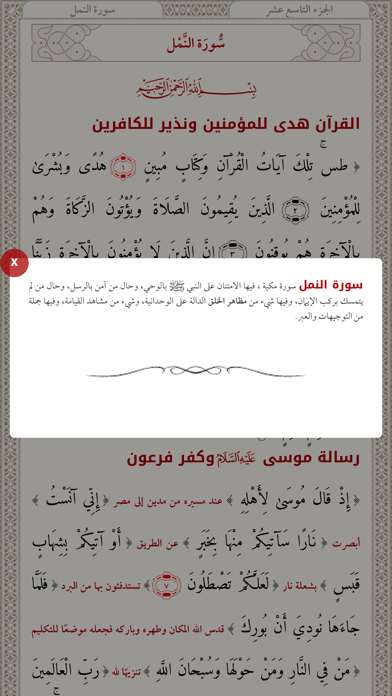 الجزء التاسع عشر
سورة النمل
سُورَة النَّمْل
بِسْمِ اللَّهِ الرَّحْمَٰنِ الرَّحِيمِ
القرآن هدى للمؤمنين ونذير للكافرين
﴿ طس ۚ تِلْكَ آيَاتُ الْقُرْآنِ وَكِتَابٍ مُّبِينٍ ١ هُدًى وَبُشْرَىٰ
لِلْمُؤْمِنِينَ ٢ الَّذِينَ يُقِيمُونَ الصَّلَاةَ وَيُؤْتُونَ الزَّكَاةَ وَهُمْ
بِالْآخِرَةِ هُمْ يُوقِنُونَ ٣ إِنَّ الَّذِينَ لَا يُؤْمِنُونَ بِالْآخِرَةِ زَيَّنَّا
x
سورة النمل سورة مكية ، فيها الامتنان على النبي ﷺ بالوحي، وحال من آمن بالرسل، وحال من لم
يتمسك بركب الإيمان، وفيها شيء من مظاهر الخلق الدالة على الوحدانية، وشيء من مشاهد القيامة، وفيها جملة
من التوجيهات والعبر.
رسالة موسى عَلَيْهِ السَّلَامُ وكفر فرعون
﴿ إِذْ قَالَ مُوسَىٰ لِأَهْلِهِ ﴾ عند مسيره من مدين إلى مصر ﴿ إِنِّي آنَسْتُ ﴾
أبصرت ﴿ نَارًا سَآتِيكُمْ مِنْهَا بِخَبَرٍ ﴾ عن الطريق ﴿ أَوْ آتِيكُمْ بِشِهَابٍ
قَبَسٍ ﴾ بشعلة نار ﴿ لَعَلَّكُمْ تَصْطَلُونَ ٧ ﴾ تستدفئون بها من البرد ﴿ فَلَمَّا
جَاءَهَا نُودِيَ أَنْ بُورِكَ ﴾ قدس الله المكان وطهره وباركه فجعله موضعًا للتكليم
﴿ مَنْ فِي النَّارِ وَمَنْ حَوْلَهَا وَسُبْحَانَ اللَّهِ ﴾ تنزيهًا لله ﴿ رَبِّ الْعَالَمِينَ